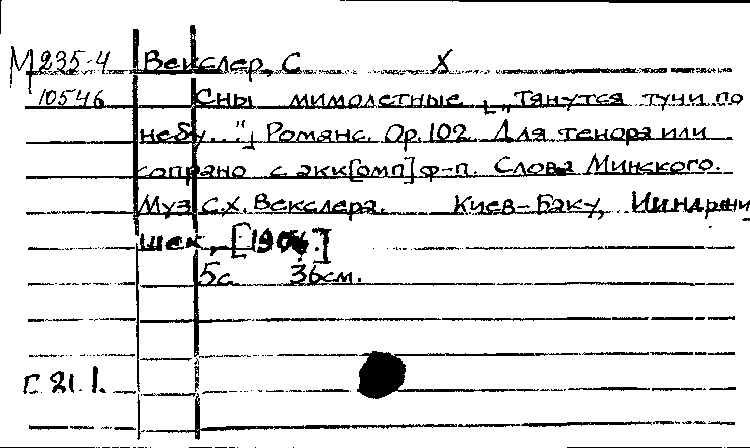 М 235-4 Векслер, С X
10546 Сны мимолетные [„Тянутся тучи по
небу..."] Романс. Ор. 102. Для тенора или
сопрано с акк[омп] ф-п. Слова Минского.
Муз. С.Х. Векслера. Киев-Баку, Индржи
шек,
5с. 36см.
Г 21 1.